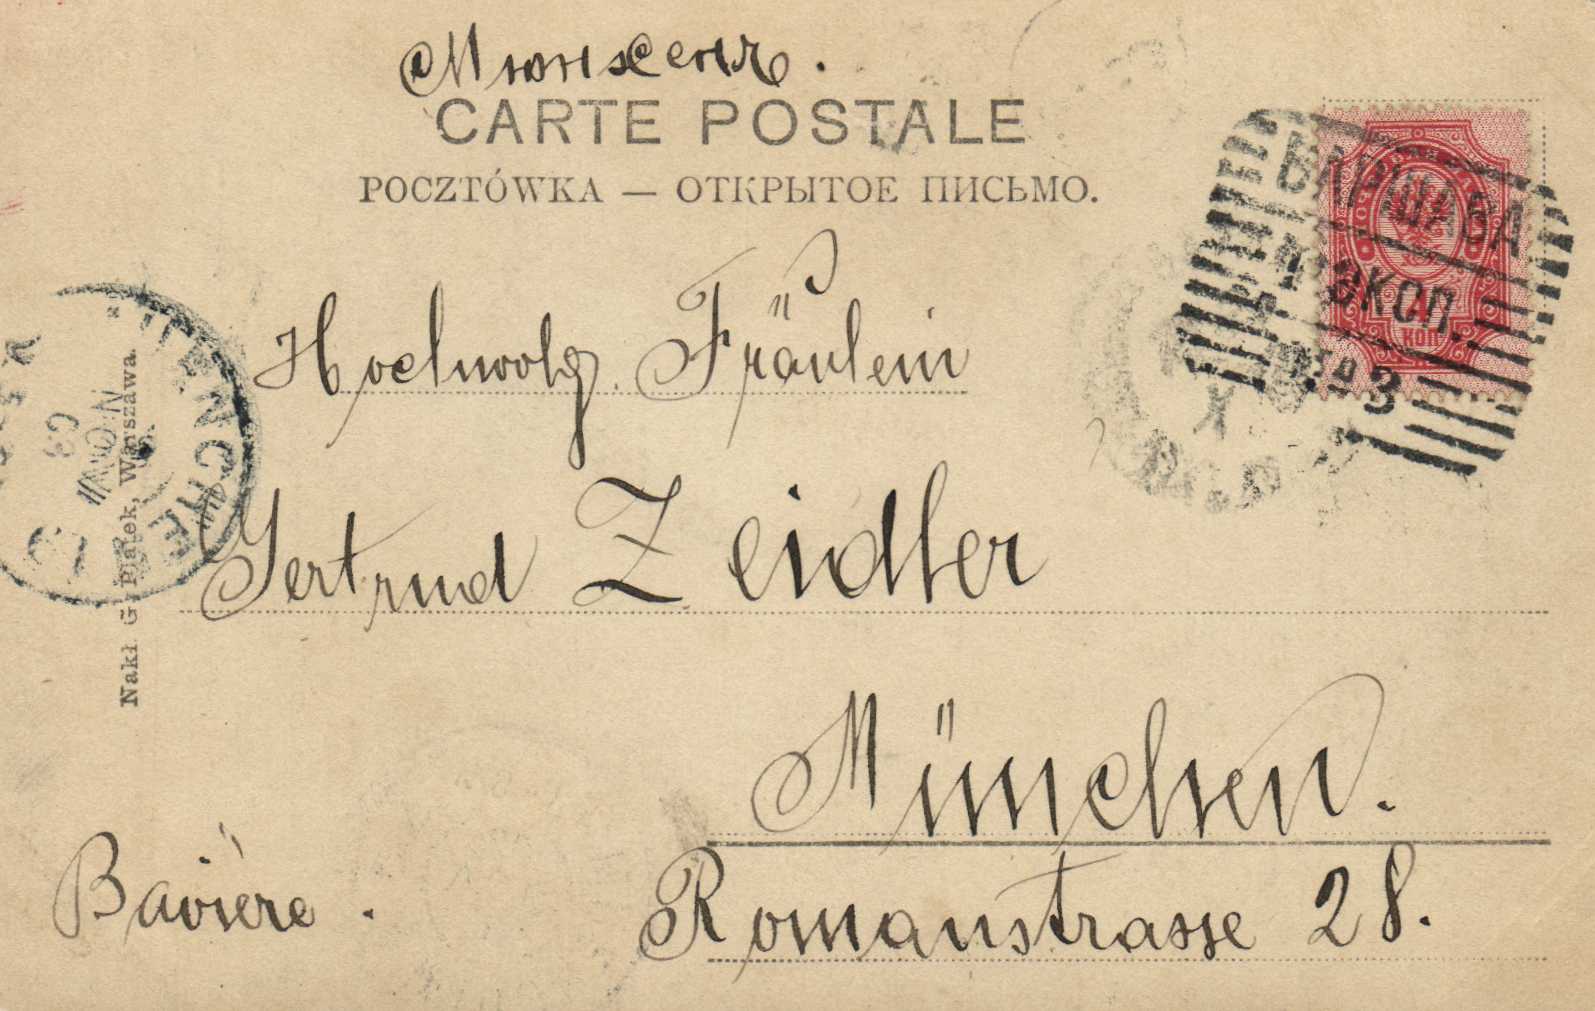 Мюнхенъ.
CARTE POSTALE
POCZTÓWKA — ОТКРЫТОЕ ПИСЬМО.
ВАРШАВА
4 КОП.
3
Hochwohlg. Fräulein
Gertrud Zeidler
München.
Romanstrasse 28.
Bavière.
MUENCHE
NOV
03
Nakł. G. Piątek, Warszawa.